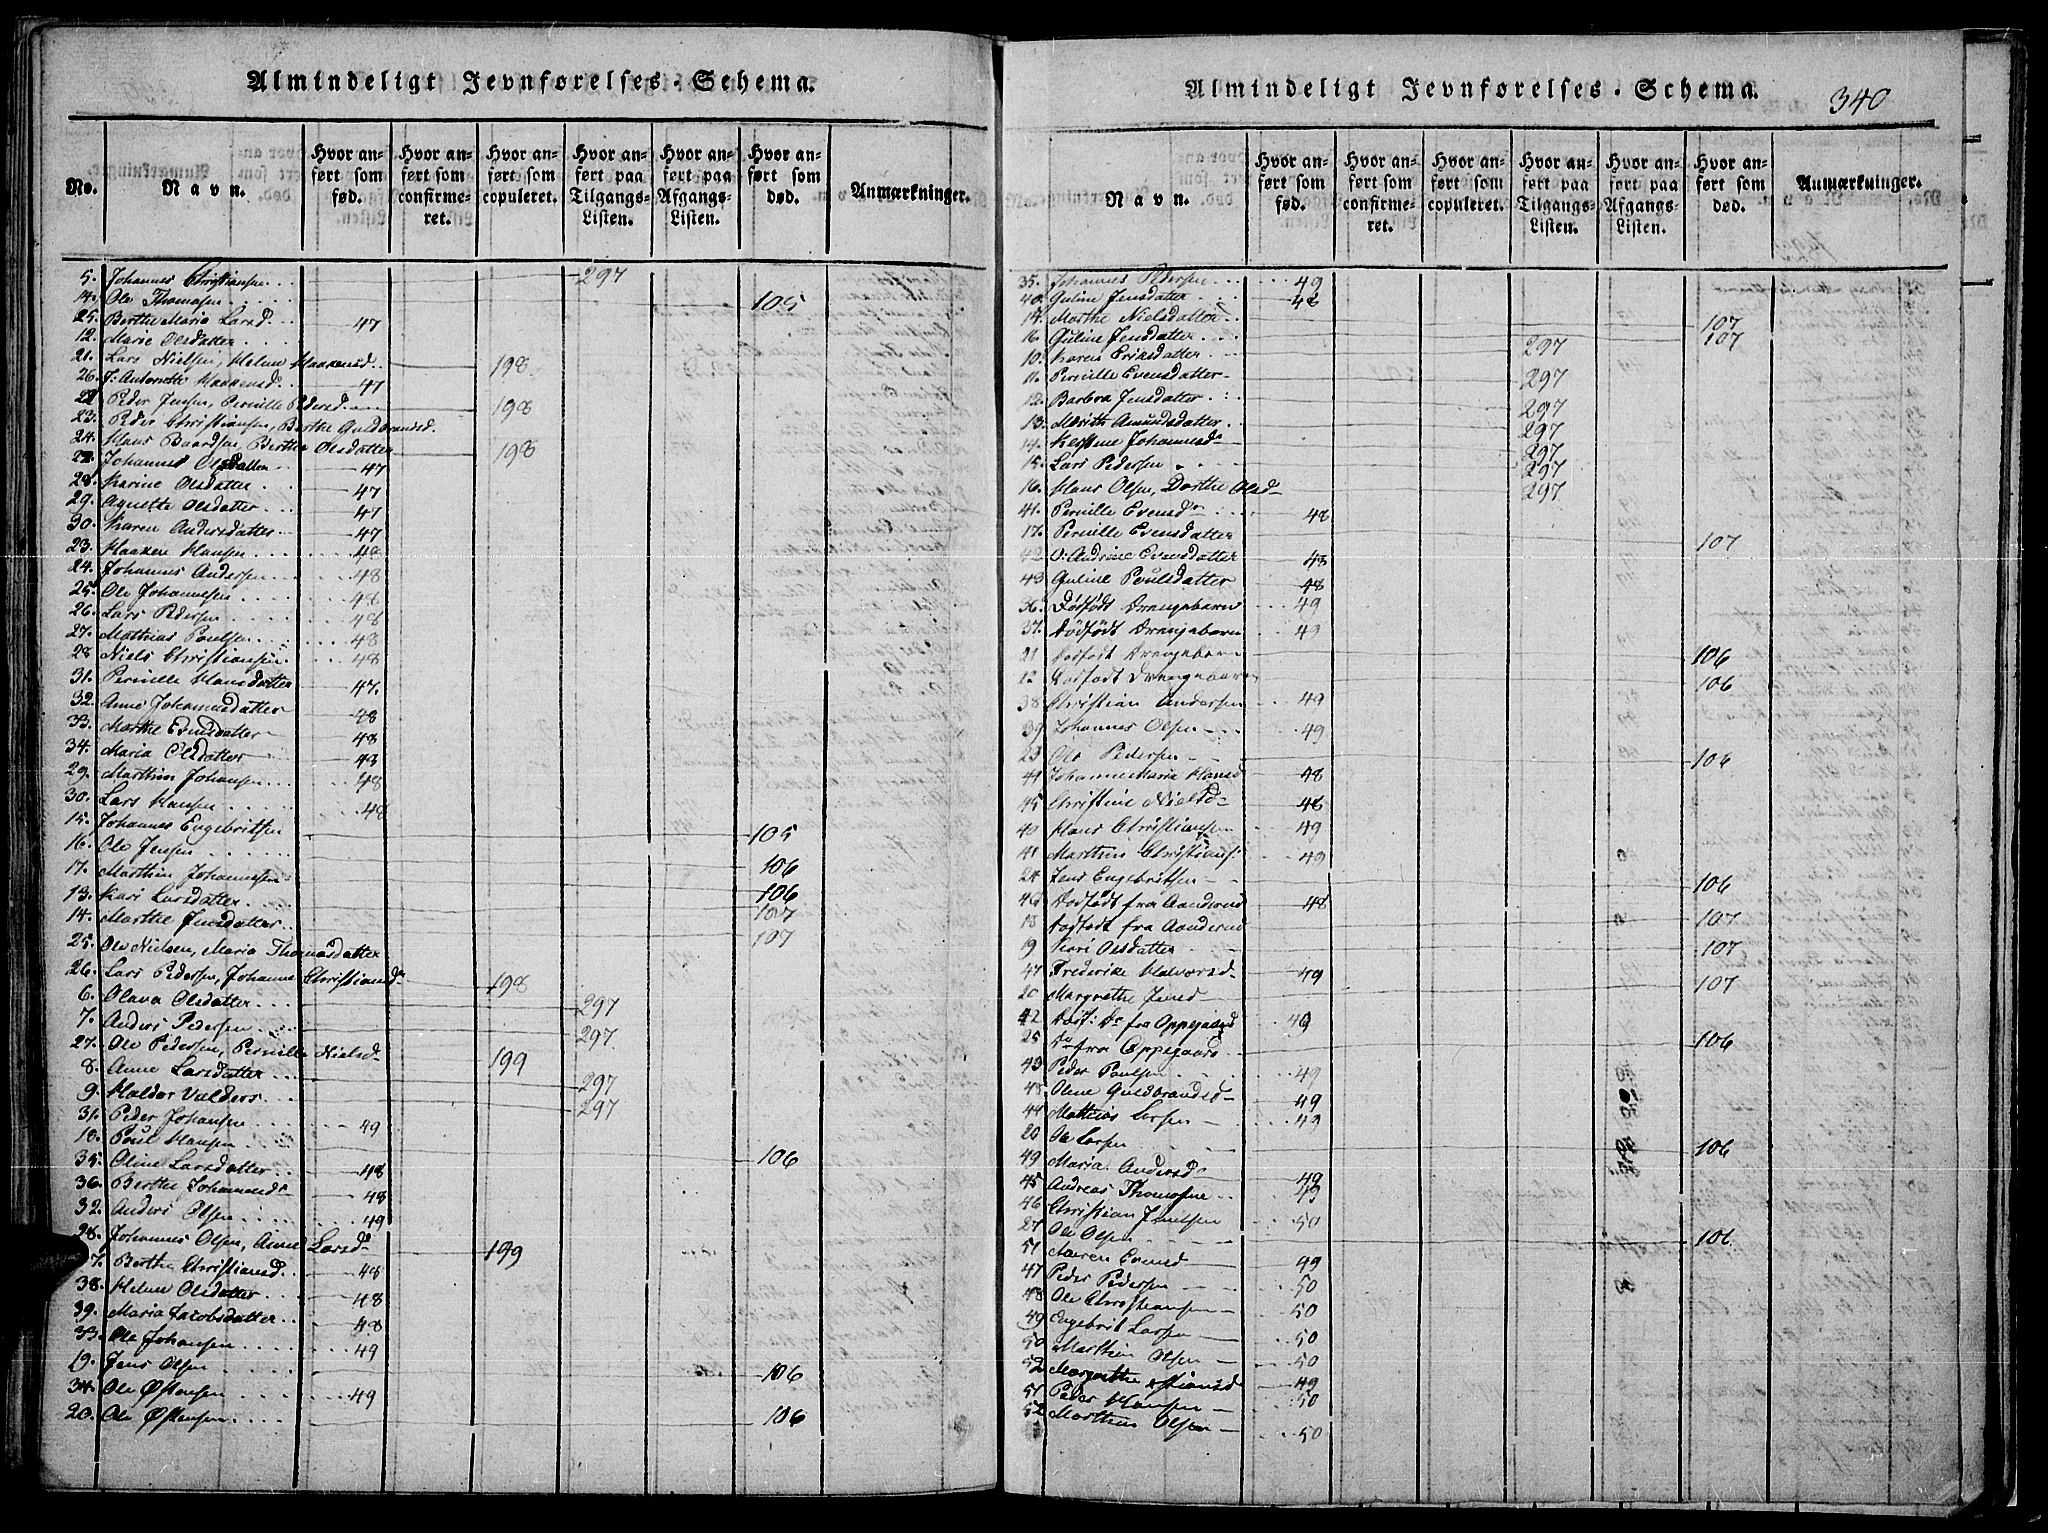 Almindeligt Jevnførelses-Schema.
No.
Navn.
Hvor anført som fød.
Hvor anført som confirmeret.
Hvor anført som copuleret.
Hvor anført paa Tilgangs-Listen.
Hvor anført paa Afgangs-Listen.
Hvor anført som død.
Anmærkninger.
5. Johannes Christiansen 297
14. Ole Thomasen 105
25. Berthe Maria Larsd. 47
12. Marie Olsdatter
21. Lars Nielsen, Helene Haakensd 198
26. J: Antonette Haakensd. 47
22 Peder Jensen, Pernille Pedersd. 198
23. Peder Christiansen, Berthe Guldbrandsd.
24. Hans Baardsen, Berthe Olsdatter 198
27. Johannes Olsdatter 47
28. Karine Olsdatter 47
29. Agnette Olsdatter 47
30. Karen Andersdatter 47
23. Haaken Hansen 48
24. Johannes Andersen 48
25. Ole Johannesen 48
26. Lars Pedersen 48
27. Mathias Poulsen 48
28 Niels Christiansen 48
31. Pernille Hansdatter 47.
32. Anne Johannesdatter 48
33. Marthe Evensdatter 48
34. Maria Olsdatter 48
29. Marthin Johansen 48
30. Lars Hansen 48
15. Johannes Engebritsen 105
16. Ole Jensen 106
17. Marthin Johannesen 106
13. Kari Larsdatter 107
14. Marthe Jensdatter 107
25. Ole Nielsen, Maria Thomasdatter
26. Lars Pedersen, Johanne Christiansd 198
6. Olava Olsdatter 297
7. Anders Pedersen 297
27. Ole Pedersen, Pernille Nielsd 199
8. Anne Larsdatter 297
9. Haldor Valders 297
31. Peder Johansen 49
18. Poul Hansen 106
35. Oline Larsdatter 48
36. Berthe Johannesd 48
32. Anders Olsen 49
28. Johannes Olsen, Anne Larsd 199
7. Berthe Christiansd. 48
38. Helene Olsdatter 48
39. Maria Jacobsdatter 48
33. Ole Johansen 49
19. Jens Olsen 106
34. Ole Østensen 49
20. Ole Østensen 106
Almindeligt Jevnførelses-Schema.
340
Navn.
Hvor anført som fød.
Hvor anført som confirmeret.
Hvor anført som copuleret.
Hvor anført paa Tilgangs-Listen.
Hvor anført paa Afgangs-Listen.
Hvor anført som død.
Anmærkninger.
35. Johannes Pedersen 49
40. Guline Jensdatter 48
15. Marthe Nielsdatter 107
16. Guline Jensdatter 107
10. Karen Eriksdatter 297
11. Pernille Evensdatter 297
12. Barbra Jensdatter 297
13. Marith Amundsdatter 297
14. Kerstine Johannesd 297
15. Lars Pedersen 297
16. Hans Olsen, Dorthe Olsd 297
41. Pernille Evensd 48
17. Pernille Evensdatter 107
42. O: Andrine Evensdatter 48
43 Guline Poulsdatter 48
36. Dødfødt Drengebarn 49
37. Dødfødt Drengebarn 49
21 Dødfødt Drengebarn 106
12 Dødfødt Drengebarn 106
38 Christian Andersen 49
39 Johannes Olsen 49
23 Ole Pedersen 106
44 Johanne Maria Hansd 48
45 Christine Nielsd 48
40 Hans Christiansen 49
41 Marthin Christians: 49
24 Jens Engebritsen 106
46 Dødfødt fra Aanderud 48
18 Dødfødt fra Aanderud 107
19 Kari Olsdatter 107
47 Frederike Halvorsd 49
20 Margrethe Jensd 107
42 Døtf: Dr fra Oppegaard 49
25 Do fra Oppegaard 106
43 Peder Poulsen 49
48 Oline Guldbrandsd 49
44 Mathias Larsen 49
20 Ole Larsen 106
49 Maria Andersd 49
45 Andreas Thomasen 49
46 Christian Jensen 50
27 Ole Olsen 106
51 Maren Evensd 49
47 Peder Pedersen 50
48 Ole Christiansen 50
49 Engebrit Larsen 50
50 Marthin Olsen 50
52 Margrethe stiansd 49
51 Peder Hansen 50
52 Marthin Olsen 50